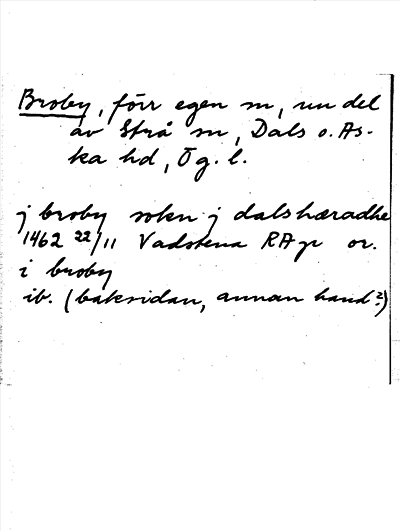 Broby, förr egen sn, nu del
av Strå sn, Dals o. As-
ka hd, Ög. l.
j broby soken j dalshæradhe
1462 22/11 Vadstena RAp or.
i broby
ib. (baksidan, annan hand?)